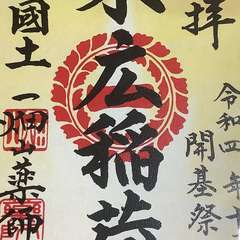 拝
令和四年十
開基祭
広稲荷
國土一畑山薬師